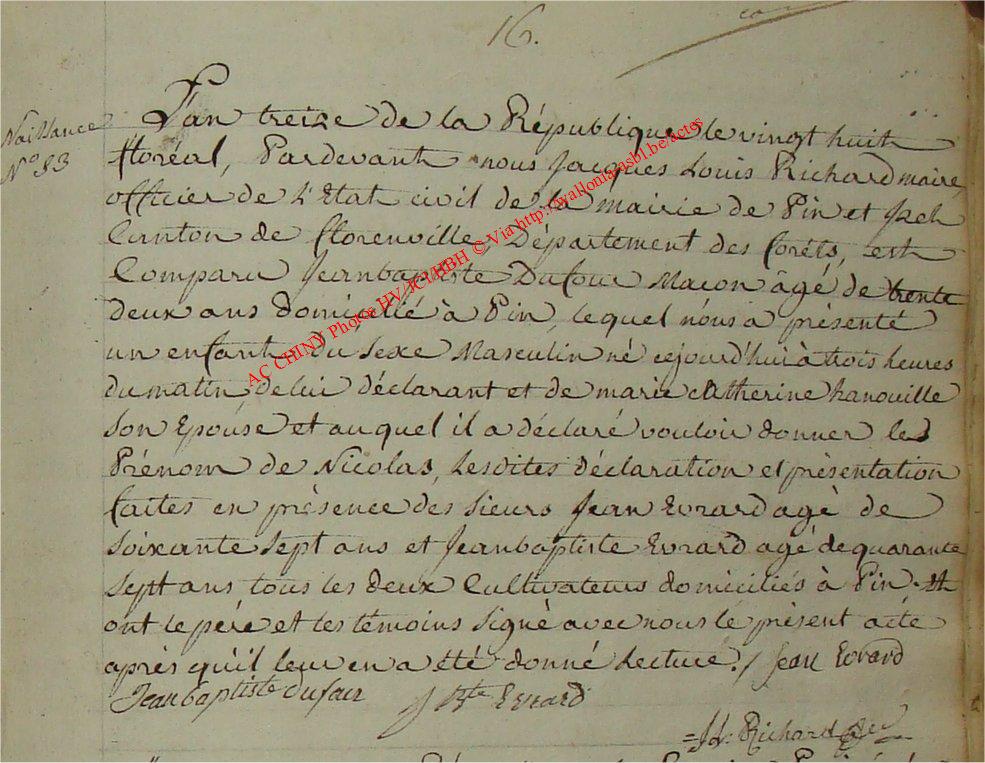 16.
Naissance
N° 33
L'an treize de la République, le vingt huit
floréal, Pardevant nous Jacques Louis Richard maire
officier de L'Etat civil de la mairie de Pin et Izel
Canton de florenville Département des forêts, est
Comparu Jeanbaptiste Dufour Macon âgé de trente
deux ans domicilié à Pin, lequel nous a présenté
un enfant du sexe Masculin né cejourd'hui à trois heures
du matin, de lui déclarant et de marie catherine hanouille
son Epouse et auquel il a déclaré vouloir donner les
Prénom de Nicolas, Lesdites déclaration et présentation
faites en présence des sieurs Jean Evrard agé de
soixante sept ans et Jeanbaptiste Evrard agé de quarante
sept ans tous les deux Cultivateurs domiciliés à Pin et
ont le père et les témoins signé avec nous le présent acte
après qu'il leur en a été donné Lecture./ Jean Evrard
Jeanbaptiste dufour J Bte Evrard
Jl. Richard
AC CHINY Photos HV/JCl/HBH © Via http://wallonia-asbl.be/actes